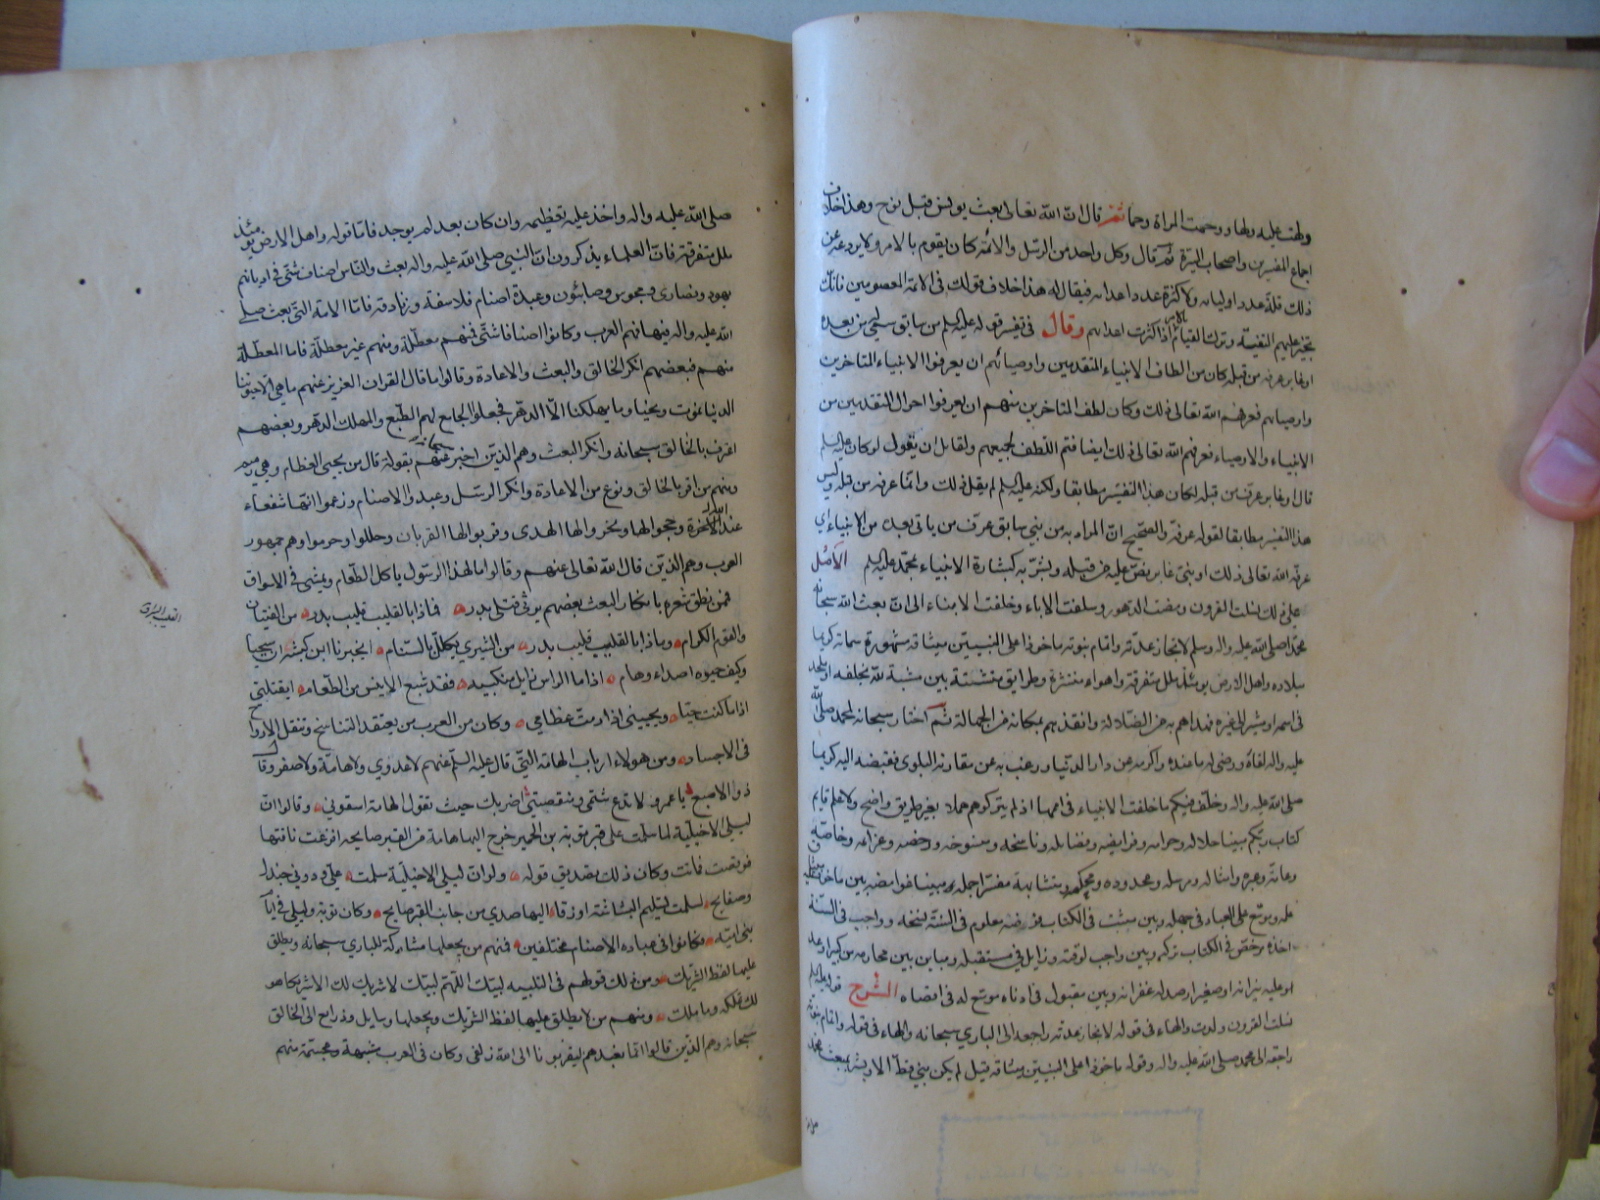 ولهت عليه ولها ورحمت المراة رحما ثم قال ان الله تعالى بعث يونس قبل نوح وهذا خلاف
اجماع المفسرين واصحاب السيرة ثم قال وكل واحد من الرسل والائمة كان يقوم بالامر ولا يردعه عن
ذلك قلة عدد اوليائه ولا كثرة عدد اعدائه فيقال له هذا خلاف قولك في الائمة المعصومين فانك
تجيز عليهم التقية وترك القيام بالامر اذا كثرت اعداؤهم وقال في تفسير قوله عليه السلم من سابق سمي له من بعده
او غابر عرفه من قبله كان من الطاف الانبياء المتقدمين واوصيائهم ان يعرفوا الانبياء المتاخرين
واوصيائهم فعرفهم الله تعالى ذلك وكان لطف المتاخرين منهم ان يعرفوا احوال المتقدمين من
الانبياء والاوصياء فعرفهم الله تعالى ذلك ايضا فتم اللطف لجميعهم ولقائل ان يقول لو كان عليه السلم
قال او غابر عرف من قبله لكان هذا التفسير مطابقا ولكنه عليه السلم لم يقل ذلك وانما عرفه من قبله وليس
هذا التفسير مطابقا لقوله عرفه والصحيح ان المراد به من بني سابق عرف من ياتي بعده من الانبياء اي
عرفه الله تعالى ذلك او نبي غابر نص عليه من قبله وبشر به كبشارة الانبياء بمحمد عليه السلم الاصل
على ذلك نسلت القرون ومضت الدهور وسلفت الاباء وخلفت الابناء الى ان بعث الله سبحانه
محمدا صلى الله عليه واله وسلم لانجاز عدته واتمام نبوته ماخوذا على النبيين ميثاقه مشهورة سماته كريما
ميلاده واهل الارض يومئذ ملل متفرقة واهواء منتشرة وطرايق متشتتة بين مشبه لله بخلقه او ملحد
في اسمه او مشير الى غيره فهداهم به من الضلالة وانقذهم بمكانه من الجهالة ثم اختار سبحانه لمحمد صلى الله
عليه واله لقاءه ورضي له ما عنده واكرمه عن دار الدنيا ورغب به عن مقارنة البلوى فقبضه اليه كريما
صلى الله عليه واله وخلف فيكم ما خلفت الانبياء في اممها اذ لم يتركوهم هملا بغير طريق واضح ولا علم قايم
كتاب ربكم مبينا حلاله وحرامه وفرايضه وفضايله وناسخه ومنسوخه ورخصه وعزائمه وخاصه
وعامه وعبره وامثاله ومرسله ومحدوده ومحكمه ومتشابهه مفسرا جمله ومبينا غوامضه بين ماخوذ ميثاق
علمه وموسع على العباد في جهله وبين مثبت في الكتاب فرضه معلوم في السنة نسخه وواجب في السنة
اخذه مرخص في الكتاب تركه وبين واجب لوقته وزايل في مستقبله ومباين بين محارمه من كبير اوعد
اوعليه نيرانه او صغير ارصد له غفرانه وبين مقبول في ادناه موسع له في اقصاه الشرح قوله عليه السلم
نسلت القرون ولدت والهاء في قوله لانجاز عدته راجعه الى الباري سبحانه والهاء في قوله واتمام نبوته
راجعه الى محمد صلى الله عليه واله وقوله ماخوذ على النبيين ميثاقه قيل لم يكن نبي قط الا وبشر بمبعث محمد
صلى الله عليه واله واخذ عليه تعظيمه وان كان بعد لم يوجد فاما قوله واهل الارض يومئذ
ملل متفرقة فان العلماء يذكرون ان النبي صلى الله عليه واله بعث والناس اصناف شتى في اديانهم
يهود ونصارى ومجوس وصابئون وعبدة اصنام فلاسفة وزنادقة فاما الامة التي بعث صلى
الله عليه واله فيها فهم العرب وكانوا اصنافا شتى فمنهم معطلة ومنهم غير معطلة فاما المعطلة
منهم فبعضهم انكر الخالق والبعث والاعادة وقالوا ما قال القران العزيز عنهم ما هي الا حيوتنا
الدنيا نموت ونحيا وما يهلكنا الا الدهر فجعلوا الجامع لهم الطبع والمهلك الدهر وبعضهم
اعترف بالخالق سبحانه وانكر البعث وهم الذين اخبر سبحانه عنهم بقوله قال من يحيي العظام وهي رميم
ومنهم من اقر بالخالق ونوع من الاعادة وانكر الرسل وعبدوا الاصنام وزعموا انها شفعاء
عند الله في الاخرة وحجوا لها ونحروا لها الهدي وقربوا لها القربان وحللوا وحرموا وهم جمهور
العرب وهم الذين قال الله تعالى عنهم وقالوا ما لهذا الرسول ياكل الطعام ويمشي في الاسواق
فمن نطق شعره بانكار البعث بعضهم يرثي قتلى بدر فماذا بالقليب قليب بدر من الفتيان
والقوم الكرام وماذا بالقليب قليب بدر من الشيزى تكلل بالسنام ايخبرنا ابن كبشة ان سنحيا
وكيف حيوه اصداء وهام اذا ما الراس زايل منكبيه فقد شبع الانيس من الطعام ايقتلني
اذا ما كنت حيا ويحييني اذا رمت عظامي وكان من العرب من يعتقد التناسخ وتنقل الارواح
في الاجساد ومن هولاء ارباب الهامة التي قال عليه السلم عنهم لا عدوى ولا هامة ولا صفر وقال
ذو الاصبع يا عمرو الا تدع شتمي ومنقصتي اضربك حيث تقول الهامة اسقوني وقالوا ان
ليلى الاخيلية لما سلمت على قبر توبة بن الحمير خرج اليها هامة من القبر صايحه افزعت ناقتها
فوقصت فماتت وكان ذلك تصديق قوله ولو ان ليلى الاخيلية سلمت علي ودوني جندل
وصفايح لسلمت تسليم البشاشة او زقا اليها صدى من جانب القبر صايح وكان توبة وليلى في ايام
بني امية وكانوا في عبادة الاصنام مختلفين فمنهم من يجعلها مشاركة للباري سبحانه ويطلق
عليها لفظ الشريك ومن ذلك قولهم في التلبيه لبيك اللهم لبيك لا شريك لك الا شريكا هو
لك تملكه وما ملك ومنهم من لا يطلق عليها لفظ الشريك ويجعلها وسايل وذرايع الى الخالق
سبحانه وهم الذين قالوا انما نعبدهم ليقربونا الى الله زلفى وكان في العرب مشبهة ومجسمة منهم